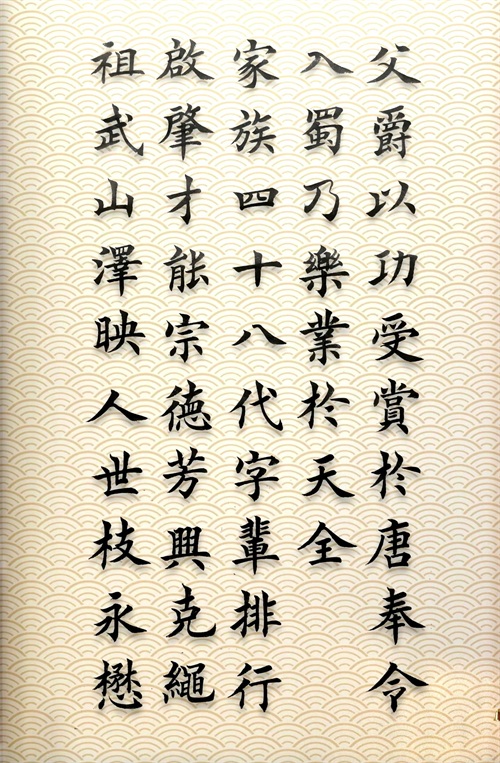 父爵以功受賞於唐奉令
入蜀乃樂業於天全
家族四十八代字輩排行
啟肇才能宗德芳興克繩
祖武山澤映人世枝永懋